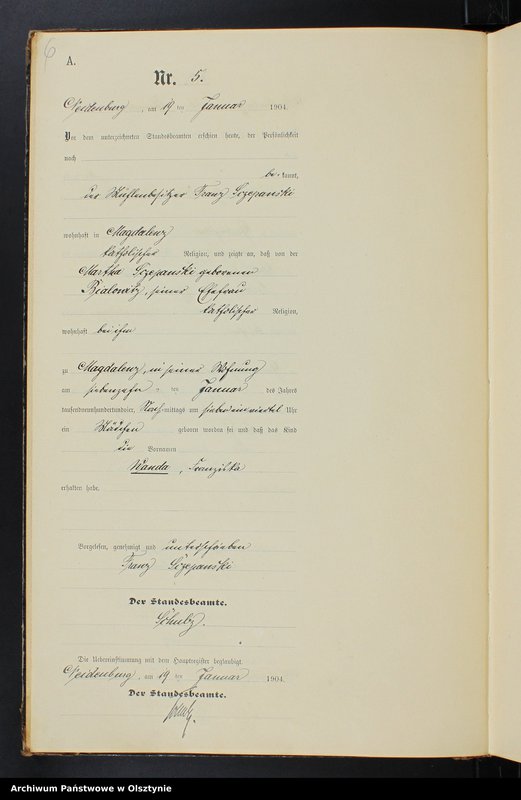 6
A.
Nr. 5.
Neidenburg, am 19 ten Januar 1904.
Vor dem unterzeichneten Standesbeamten erschien heute, der Persönlichkeit
nach
be kannt,
der Mühlenbesitzer Franz Szepanski
wohnhaft in Magdalenz
katholischer Religion, und zeigte an, daß von der
Martha Szepanski geborenen
Bialowitz, seiner Ehefrau
katholischer Religion,
wohnhaft bei ihm
zu Magdalenz, in seiner Wohnung
am siebenzehn ten Januar des Jahres
tausendneunhundertundvier, Nachmittags um sieben einviertel Uhr
ein Mädchen geboren worden sei und daß das Kind
die Vornamen
Wanda, Franziska
erhalten habe.
Vorgelesen, genehmigt und unterschrieben
Franz Szepanski
Der Standesbeamte.
Schulz.
Die Uebereinstimmung mit dem Hauptregister beglaubigt.
Neidenburg, am 19 ten Januar 1904.
Der Standesbeamte.
Schulz.
Archiwum Państwowe w Olsztynie